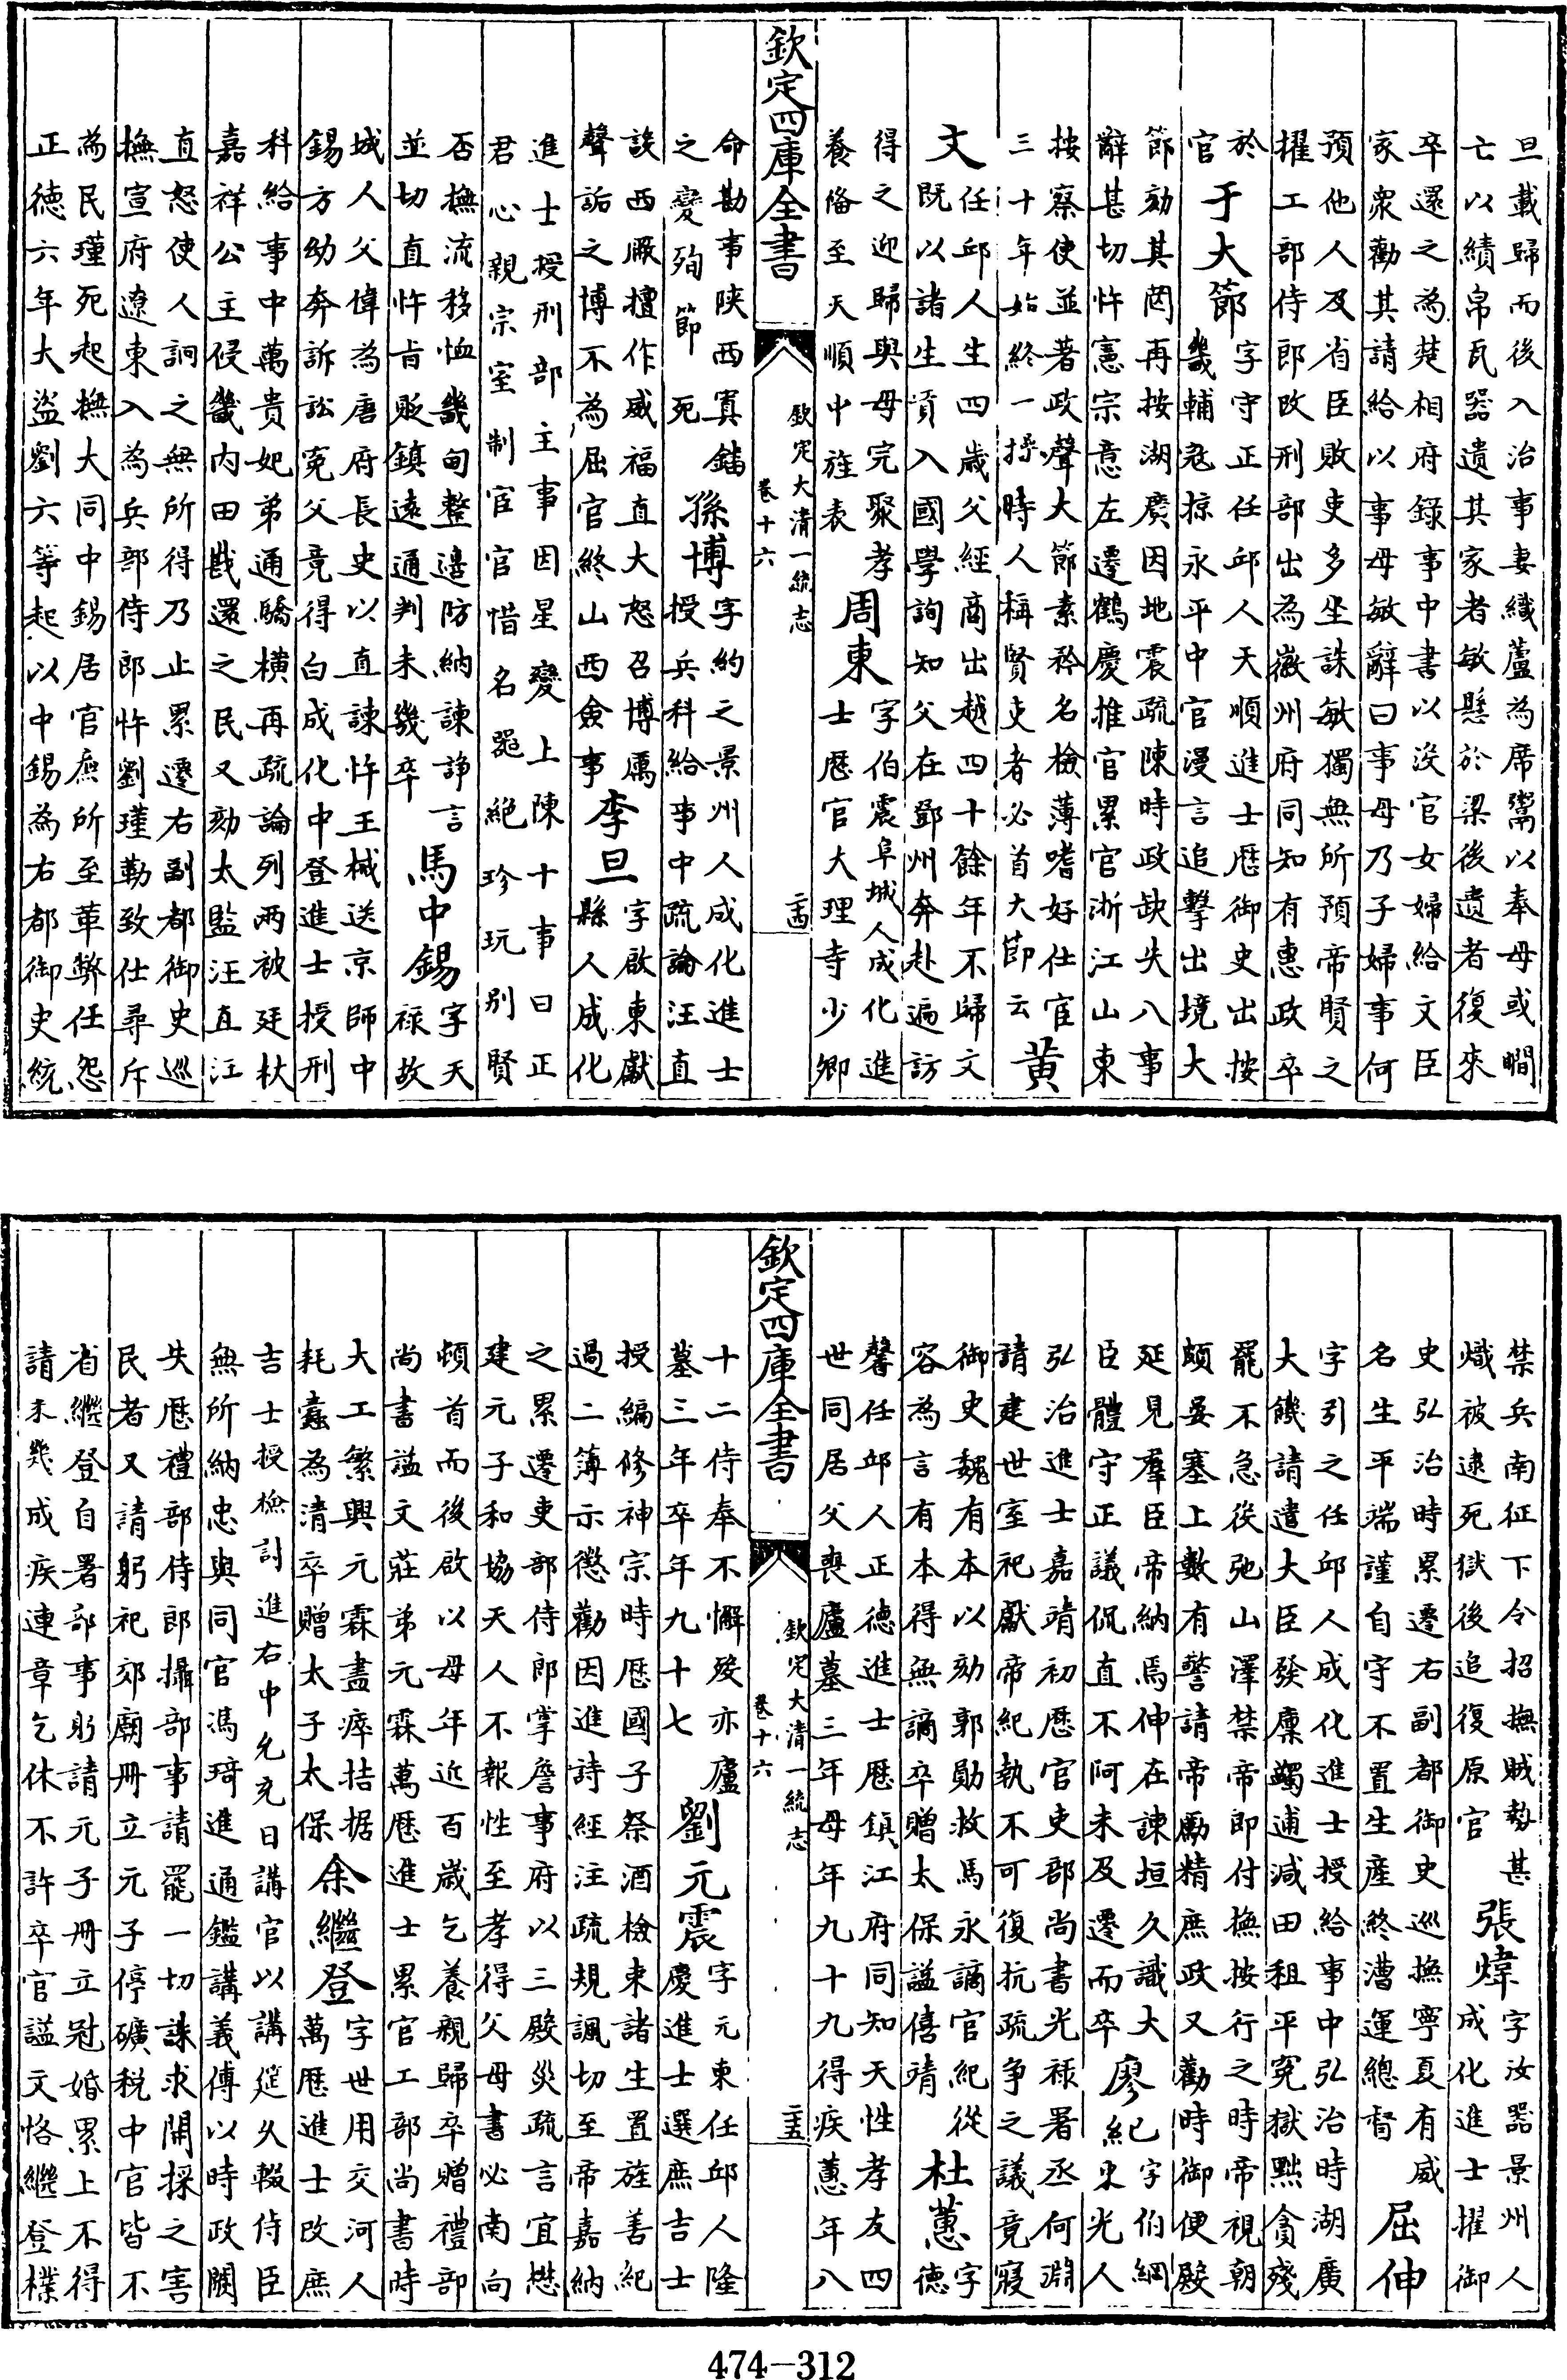 旦載歸而後入治事妻織蘆為席鬻以奉母或瞯
亡以績帛瓦器遺其家者敏懸於梁後遺者復來
卒還之為楚相府錄事中書以沒官女婦給文臣
家衆勸其請給以事母敏辭曰事母乃子婦事何
預他人及省臣敗吏多坐誅敏獨無所預帝賢之
擢工部侍郎改刑部出為徽州府同知有惠政卒
於
官
于大節
字守正任邱人天順進士歴御史出按
畿輔冦掠永平中官漫言追擊出境大
節劾其罔再按湖廣因地震疏陳時政缺失八事
辭甚切忤憲宗意左遷鶴慶推官累官浙江山東
按察使並著政聲大節素矜名檢薄嗜好仕宦
三十年始終一操時人稱賢吏者必首大節云
黄
文
任邱人生四歲父經商出越四十餘年不歸文
既以諸生貢入國學詢知父在鄧州奔赴遍訪
得之迎歸與母完聚孝
養俻至天順中旌表
周東
字伯震阜城人成化進
士歴官大理寺少卿
欽定四庫全書
欽定大清一統志
卷十六
命勘事陜西寘鐇
之變殉節死
孫博
字約之景州人成化進士
授兵科給事中疏論汪直
設西厰擅作威福直大怒召博厲
聲詬之博不為屈官終山西僉事
李旦
字啟東獻
縣人成化
進士授刑部主事因星變上陳十事曰正
君心親宗室制官官惜名噐絶珍玩别賢
否撫流移恤畿甸整邉防納諫諍言
並切直忤㫖貶鎮逺通判未幾卒
馬中錫
字天
禄故
城人父偉為唐府長史以直諫忤王械送京師中
錫方幼奔訴訟寃父竟得白成化中登進士授刑
科給事中萬貴妃弟通驕横再疏論列兩被廷杖
嘉祥公主侵畿内田戡還之民又劾太監汪直汪
直怒使人詗之無所得乃止累遷右副都御史巡
撫宣府遼東入為兵部侍郎忤劉瑾勒致仕尋斥
為民瑾死起撫大同中錫居官庶所至革弊任怨
正徳六年大盜劉六等起以中錫為右都御史統
禁兵南征下令招撫賊勢甚
熾被逮死獄後追復原官
張煒
字汝器景州人
成化進士擢御
史弘治時累遷右副都御史巡撫寧夏有威
名生平端謹自守不置生產終漕運總督
屈伸
字引之任邱人成化進士授給事中弘治時湖廣
大饑請遣大臣發廩蠲逋減田租平寃獄黜貪殘
罷不急後弛山澤禁帝即付撫按行之時帝視朝
頗晏塞上數有警請帝勵精庶政又勸時御便殿
延見羣臣帝納焉伸在諫垣久識大
臣體守正議侃直不阿未及遷而卒
廖紀
字伯綱
東光人
弘治進士嘉靖初歴官吏部尚書光禄署丞何淵
請建世室祀獻帝紀執不可復抗疏争之議竟寢
御史魏有本以劾郭勛救馬永謫官紀從
容為言有本得無謫卒贈太保諡僖靖
杜蕙
字
德
馨任邱人正德進士歴鎮江府同知天性孝友四
世同居父喪廬墓三年母年九十九得疾蕙年八
欽定四庫全書
欽定大清一統志
卷十六
十二侍奉不懈歿亦廬
墓三年卒年九十七
劉元震
字元東任邱人隆
慶進士選庶吉士
授編修神宗時歴國子祭酒檢束諸生置旌善紀
過二簿示懲勸因進詩經注疏規諷切至帝嘉納
之累遷吏部侍郎掌詹事府以三殿災疏言宜懋
建元子和協天人不報性至孝得父母書必南向
頓首而後啟以母年近百歲乞養親歸卒贈禮部
尚書諡文莊弟元霖萬歴進士累官工部尚書時
大工繁興元霖盡瘁拮据
耗蠧為清卒贈太子太保
余繼登
字世用交河人
萬歴進士改庶
吉士授檢討進右中允充日講官以講筵久輟侍臣
無所納忠與同官馮琦進通鑑講義傅以時政闕
失歴禮部侍郎攝部事請罷一切誅求開採之害
民者又請躬祀郊廟冊立元子停礦稅中官皆不
省繼登自署部事即請元子冊立冠婚累上不得
請未幾成疾連章乞休不許卒官諡文恪繼登樸
474-312